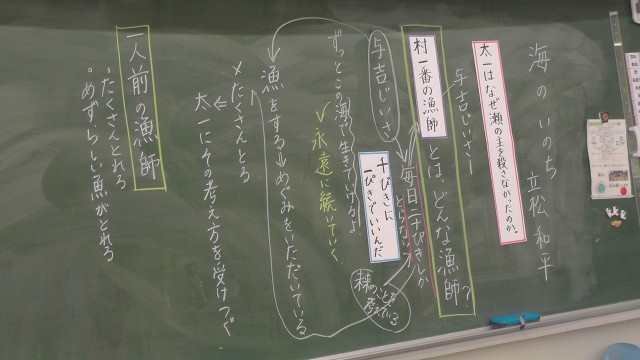 海のいのち 立松和平
太一はなぜ瀬の主を殺さなかったのか。
与吉じいさ―
村一番の漁師とは、どんな漁師?
毎日二十ぴきしか
とらない
千びきに
一ぴきでいいんだ
与吉じいさ
ずっとこの海で生きていけるよ
✓永遠に続いていく
漁をする⇒めぐみをいただいている
×たくさんとる
太一にその考え方を受けつぐ。
一人前の漁師
・たくさんとれる
・めずらしい魚がとれる